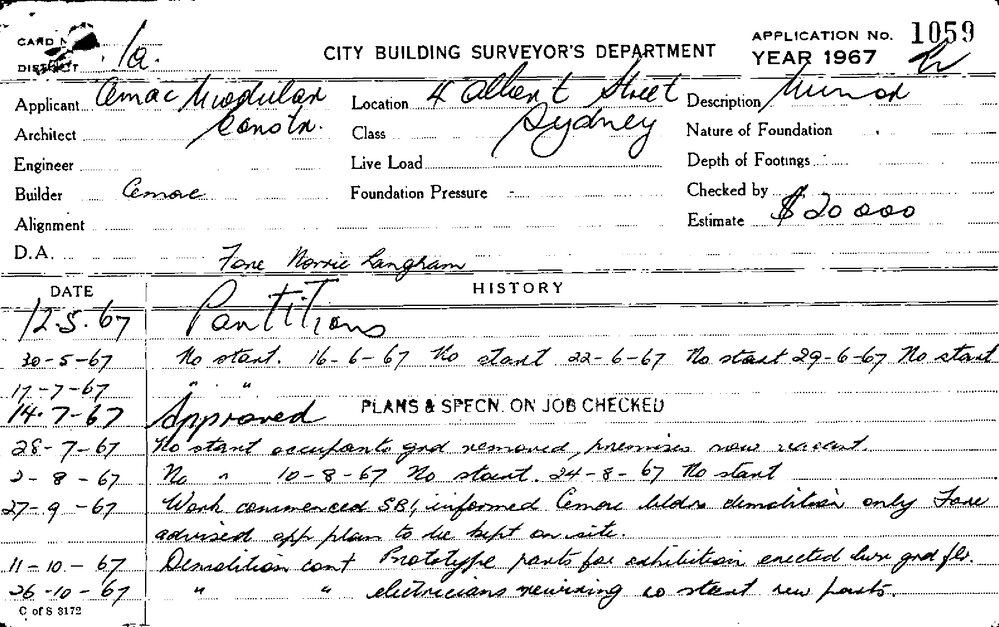 CARD No. 1a. CITY BUILDING SURVEYOR'S DEPARTMENT APPLICATION No. 1059
DISTRICT YEAR 1967
Applicant Cemac Modular Location 4 Albert Street Description Minor
Architect Constr. Class Sydney Nature of Foundation
Engineer Live Load Depth of Footings
Builder Cemac Foundation Pressure - Checked by
Alignment Estimate $20000
D.A. Fone Norrie Langham
DATE HISTORY
12.5.67 Partitions
30-5-67 No start. 16-6-67 No start 22-6-67 No start 29-6-67 No start
17-7-67 " "
14.7-67 Approved PLANS & SPECN. ON JOB CHECKED
28-7-67 No start occupants grd removed, premises now vacant.
2-8-67 No " 10-8-67 No start. 24-8-67 No start
27-9-67 Work commenced SBI, informed Cemac bldrs demolition only Fone
advised app plan to be kept on site.
11-10-67 Demolition cont Prototype parts for exhibition erected grd flr.
26-10-67 " " electricians rewiring no start new parts.
C of S 3172